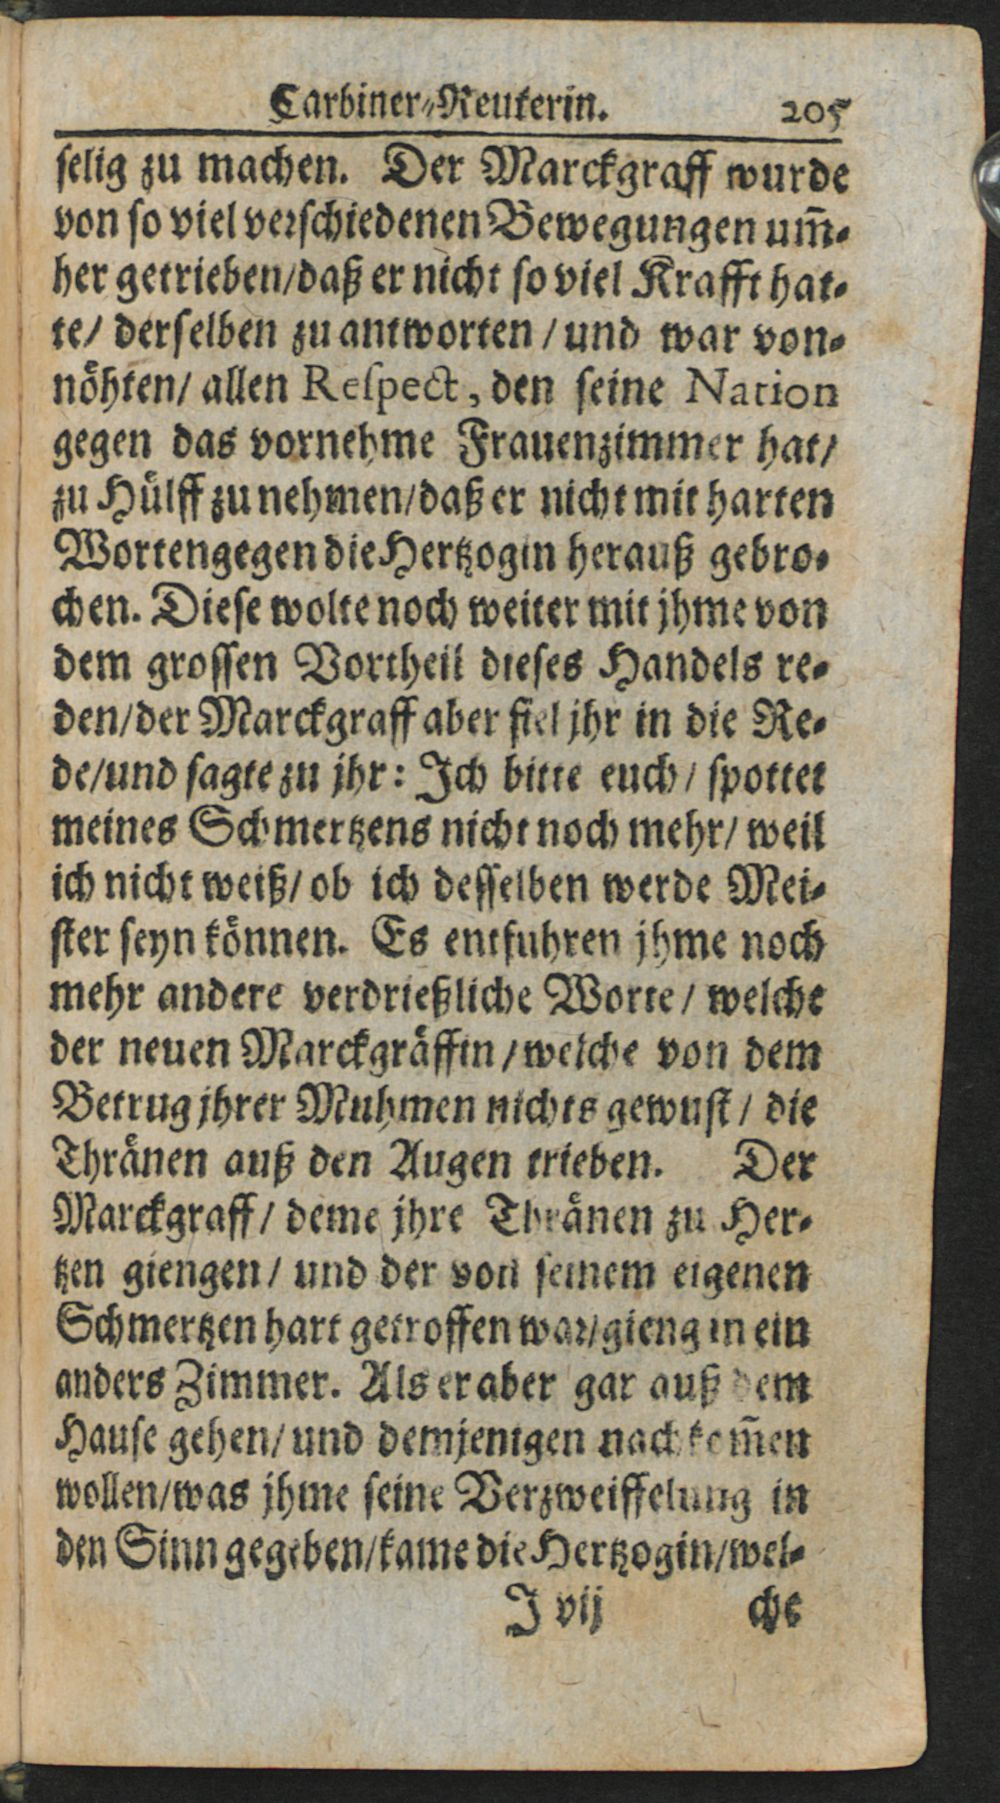 Carbiner-Reuterin. 205
selig zu machen. Der Marckgraff wurde
von so viel verschiedenen Bewegungen um̃-
her getrieben/daß er nicht so viel Krafft hat-
te/ derselben zu antworten / und war von-
nöhten/ allen Respect, den seine Nation
gegen das vornehme Frauenzimmer hat/
zu Hülff zu nehmen/daß er nicht mit harten
Worten gegen die Hertzogin herauß gebro-
chen. Diese wolte noch weiter mit jhme von
dem grossen Vortheil dieses Handels re-
den/der Marckgraff aber fiel jhr in die Re-
de/und sagte zu jhr: Ich bitte euch / spottet
meines Schmertzens nicht noch mehr/ weil
ich nicht weiß/ ob ich desselben werde Mei-
ster seyn können. Es entfuhren jhme noch
mehr andere verdrießliche Worte / welche
der neuen Marckgräffin / welche von dem
Betrug jhrer Muhmen nichts gewust / die
Thränen auß den Augen trieben. Der
Marckgraff / deme jhre Thränen zu Her-
tzen giengen / und der von seinem eigenen
Schmertzen hart getroffen war/gieng in ein
anders Zimmer. Als er aber gar auß dem
Hause gehen/ und demjenigen nachkom̃en
wollen/was jhme seine Verzweiffelung in
den Sinn gegeben/kame die Hertzogin/wel-
J vij che